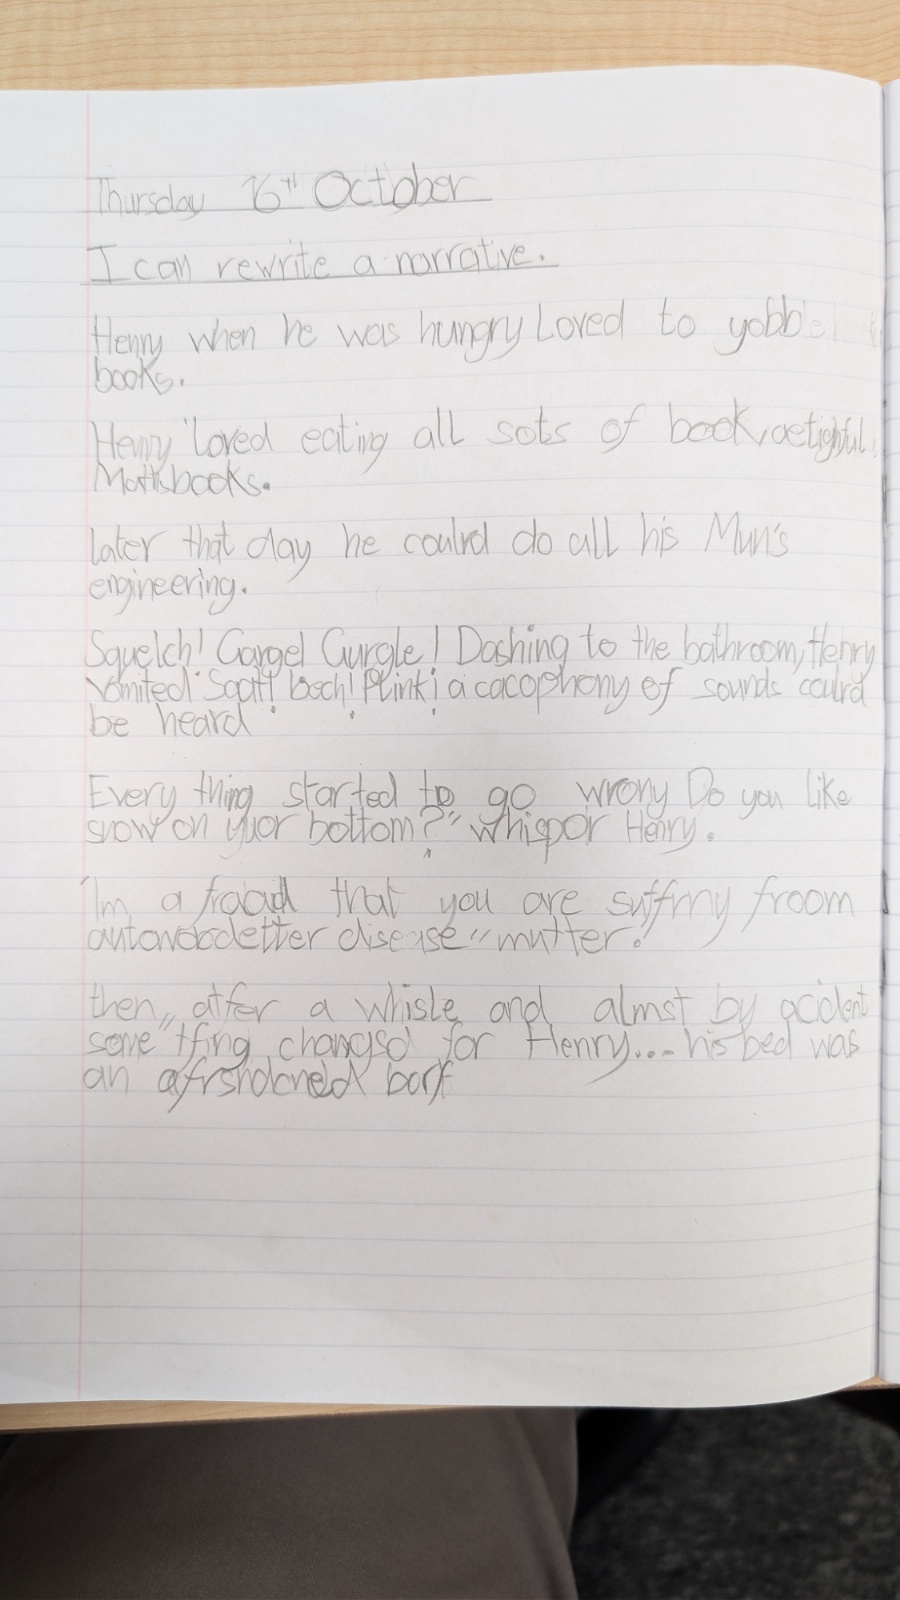 Thursday 16th October
I can rewrite a narrative.
Henry when he was hungry Loved to yobble
books.
Henry loved eating all sots of book,
Maths books.
Later that day he coulrd do all his Mun's
engineering.
Squelch! Gargel Gurgle! Dashing to the bathroom, Henry
Vomited Sqatt! bosch! Plink! a cacophony of sounds coulrd
be heard
Every thing started to go wrony Do you like
snow on yuor bottom?" whispor Henry.
Im a fraad that you are suffrny froom
disease" mutter.
then, atfer a whisle and almst by acident
some tfing changsd for Henry... his bed was
an